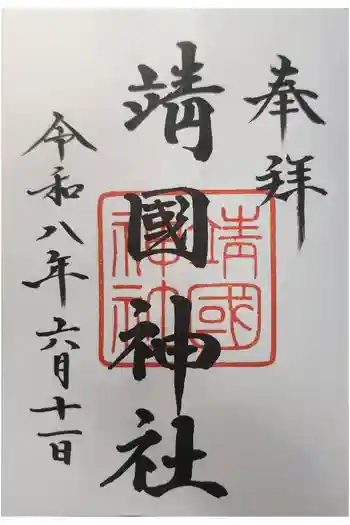 奉拝
靖國神社
靖國
神社
令和八年六月十一日